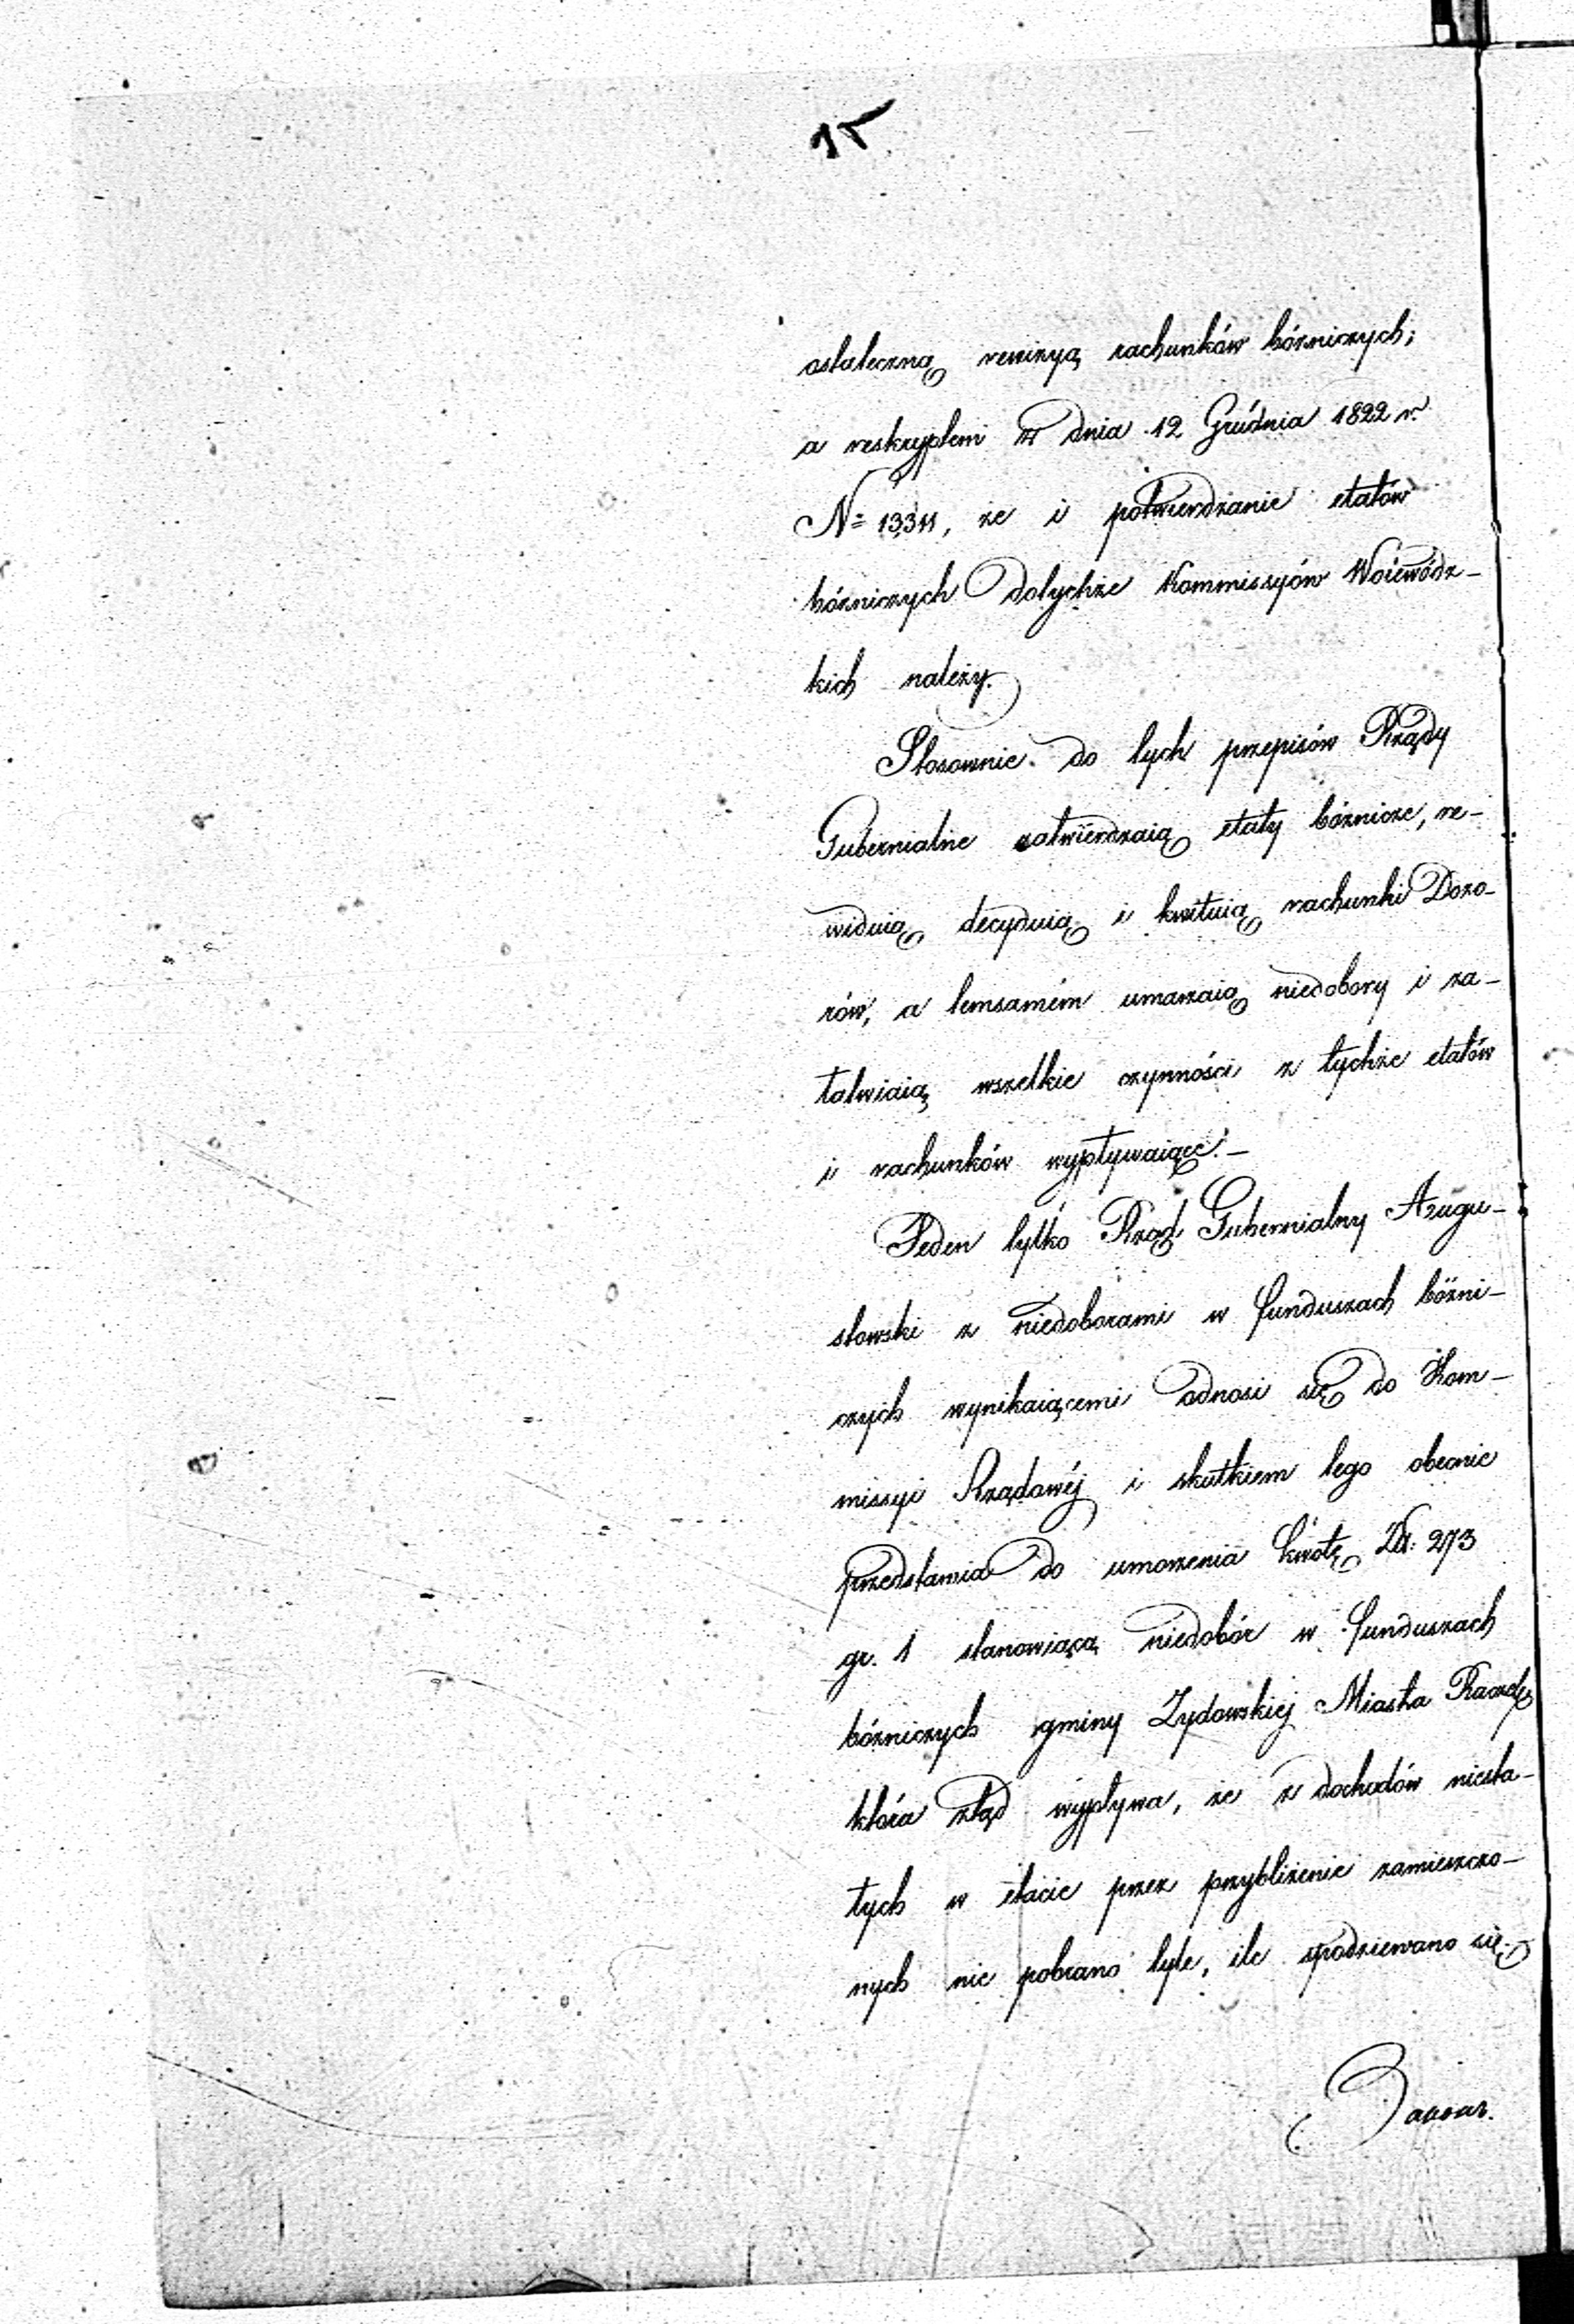 15
ostateczną rewizyą rachunków bóżniczych;
a reskryptem z dnia 12 Grudnia 1822 r.
N= 13311, że i potwierdzanie etatów
bóżniczych do tychże Kommissyów Woiewódz-
kich należy.
Stosownie do tych przepisów Rządy
Gubernialne zatwierdzaią etaty bóżnicze, re-
widuią, decyduią i kwituią rachunki Dozo-
rów, a temsamém umarzaią niedobory i za-
łatwiaią wszelkie czynności z tychże etatów
i rachunków wypływaiące.-
Jeden tylko Rząd Gubernialny Augu-
stowski z niedoborami w funduszach bóżni-
czych wynikaiącemi odnosi się do Kom-
missyi Rządowéj i skutkiem tego obecnie
przedstawia do umorzenia kwotę Zł: 273
gr. 1 stanowiącą niedobór w funduszach
bóżniczych gminy Żydowskiej Miasta Raczek
która ztąd wypływa, że z dochodów niesta-
łych w etacie przez przybliżenie zamieszczo-
nych nie pobrano tyle, ile spodziewano się.